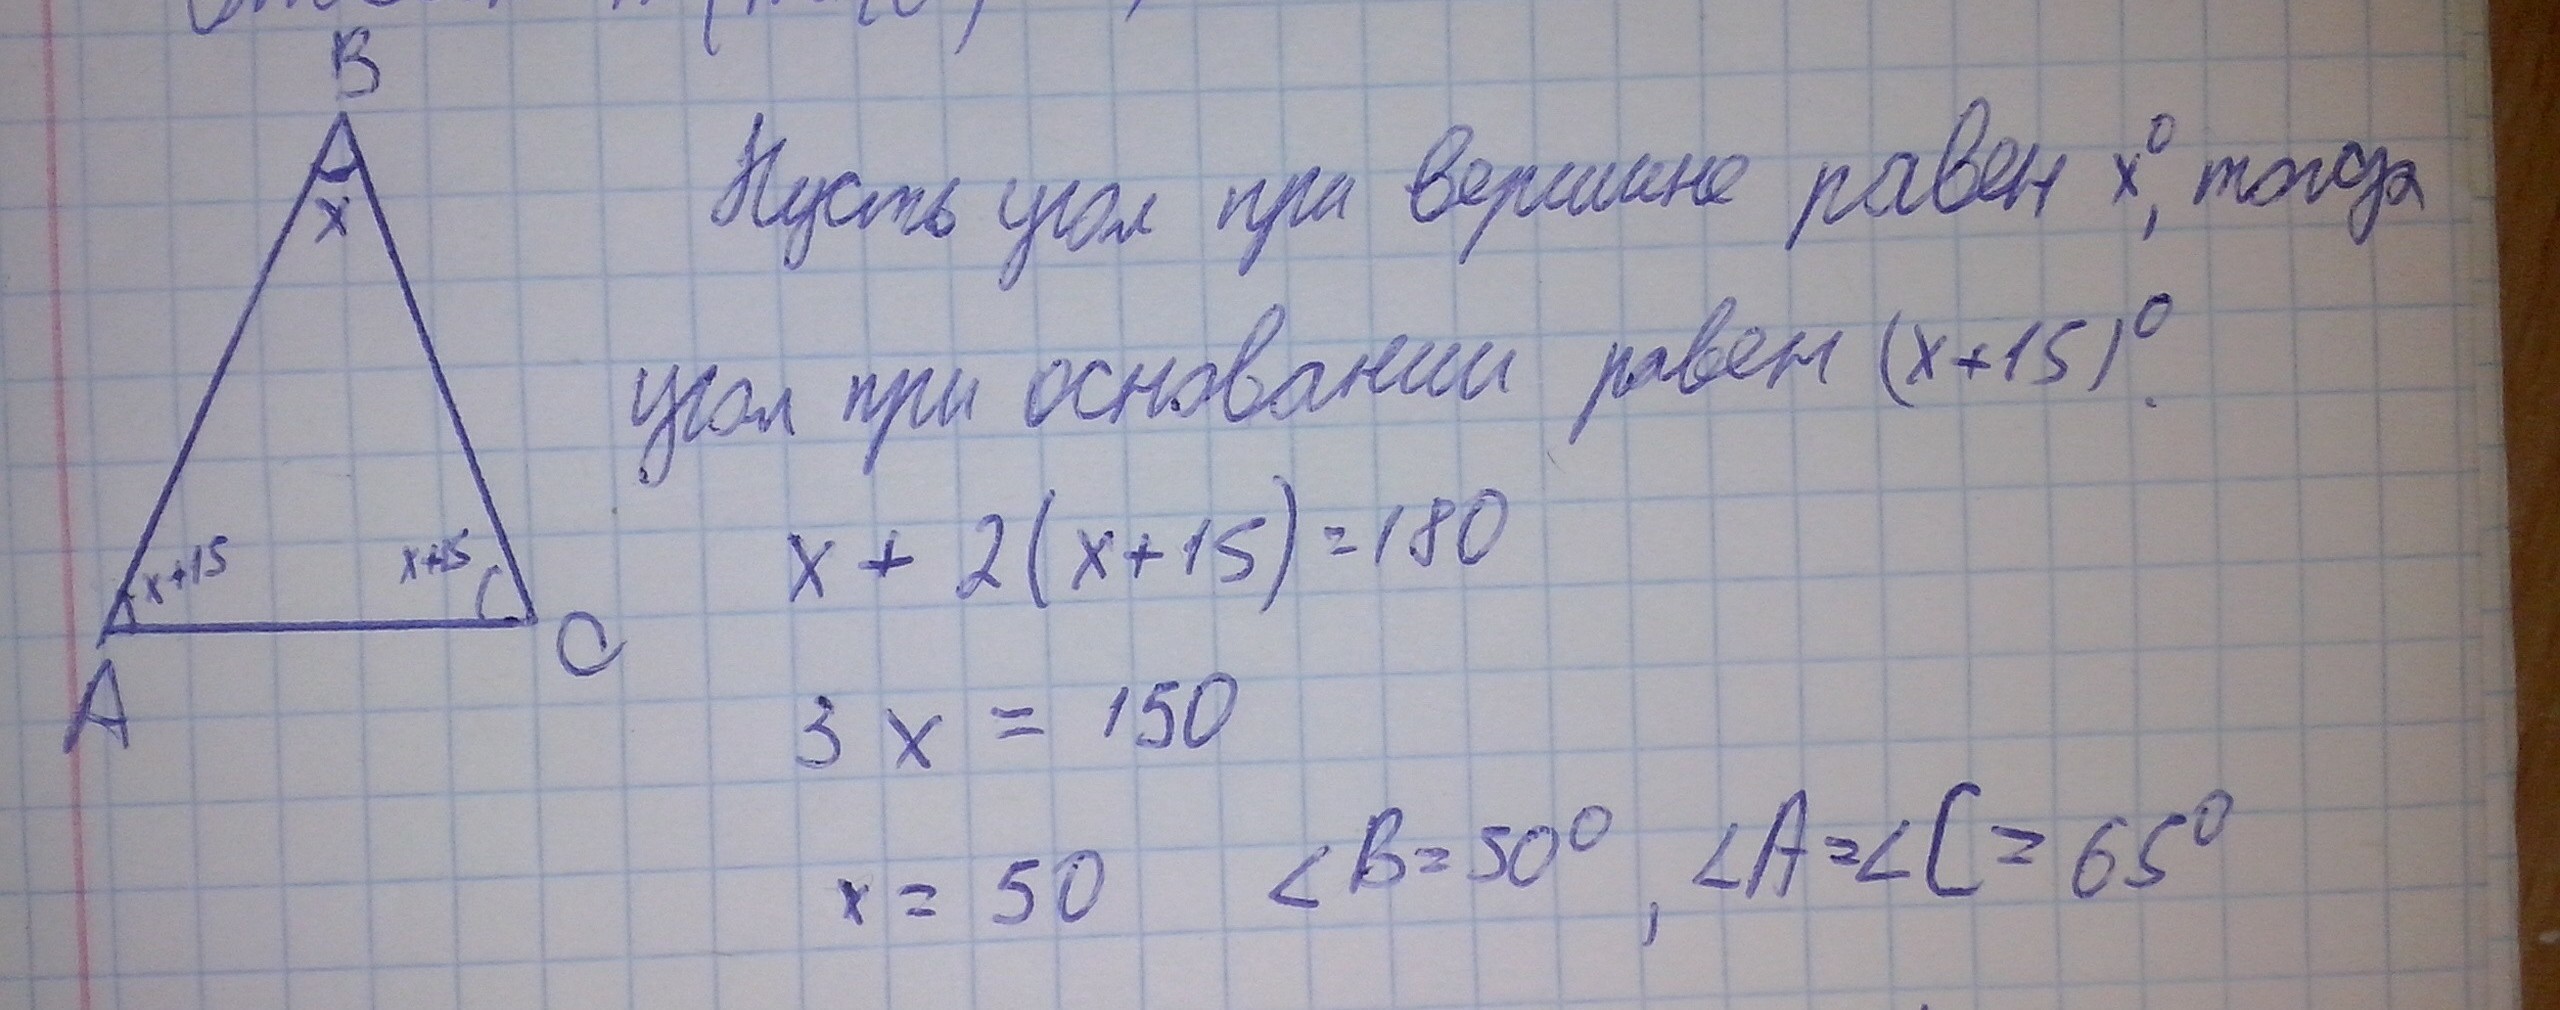 B
x
x+15
x+15
A
C
Пусть угол при вершине равен x⁰, тогда
угол при основании равен (x+15)⁰.
x + 2(x+15)=180
3x = 150
x = 50 ∠B=50⁰, ∠A=∠C=65⁰